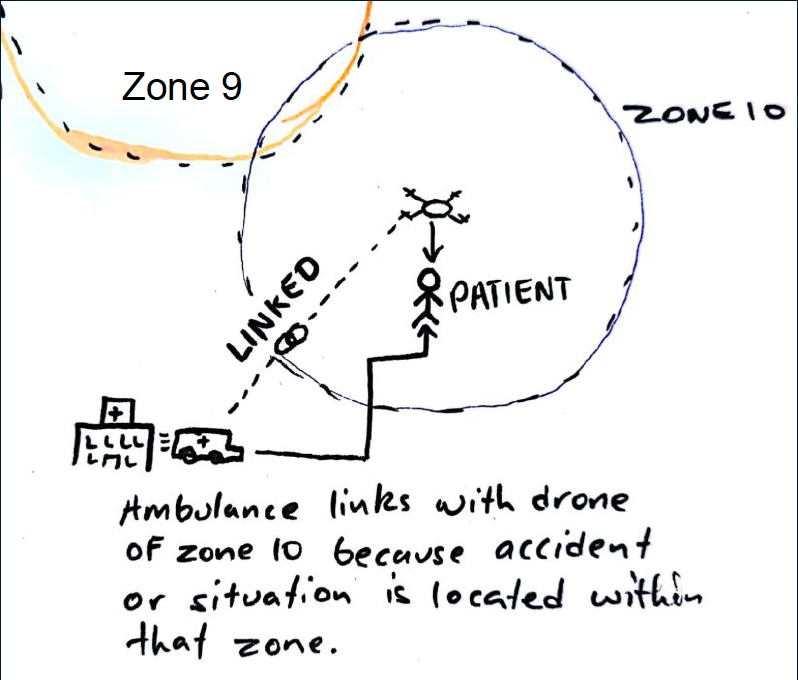 Zone 9
ZONE 10
LINKED
PATIENT
Ambulance links with drone
of zone 10 because accident
or situation is located within
that zone.